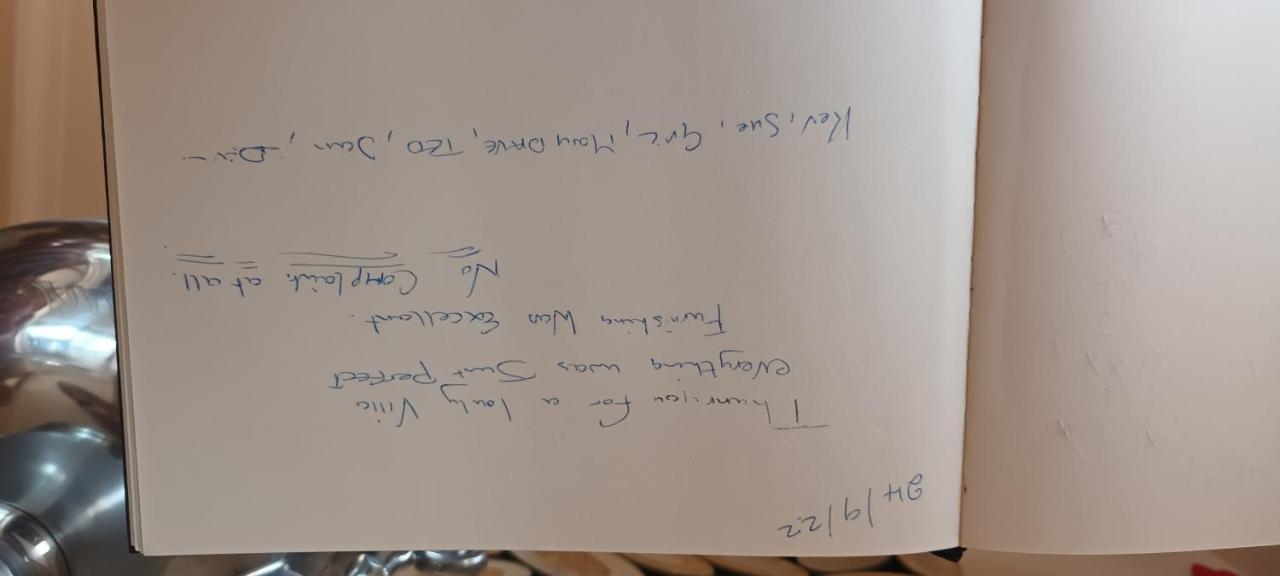 24/9/22
Thankyou for a lovly Villa
everything was Just perfect
Furnishing Was Excellant.
No Complaints at all.
Kev, Sue, Mary DAVE, TED, Jean,